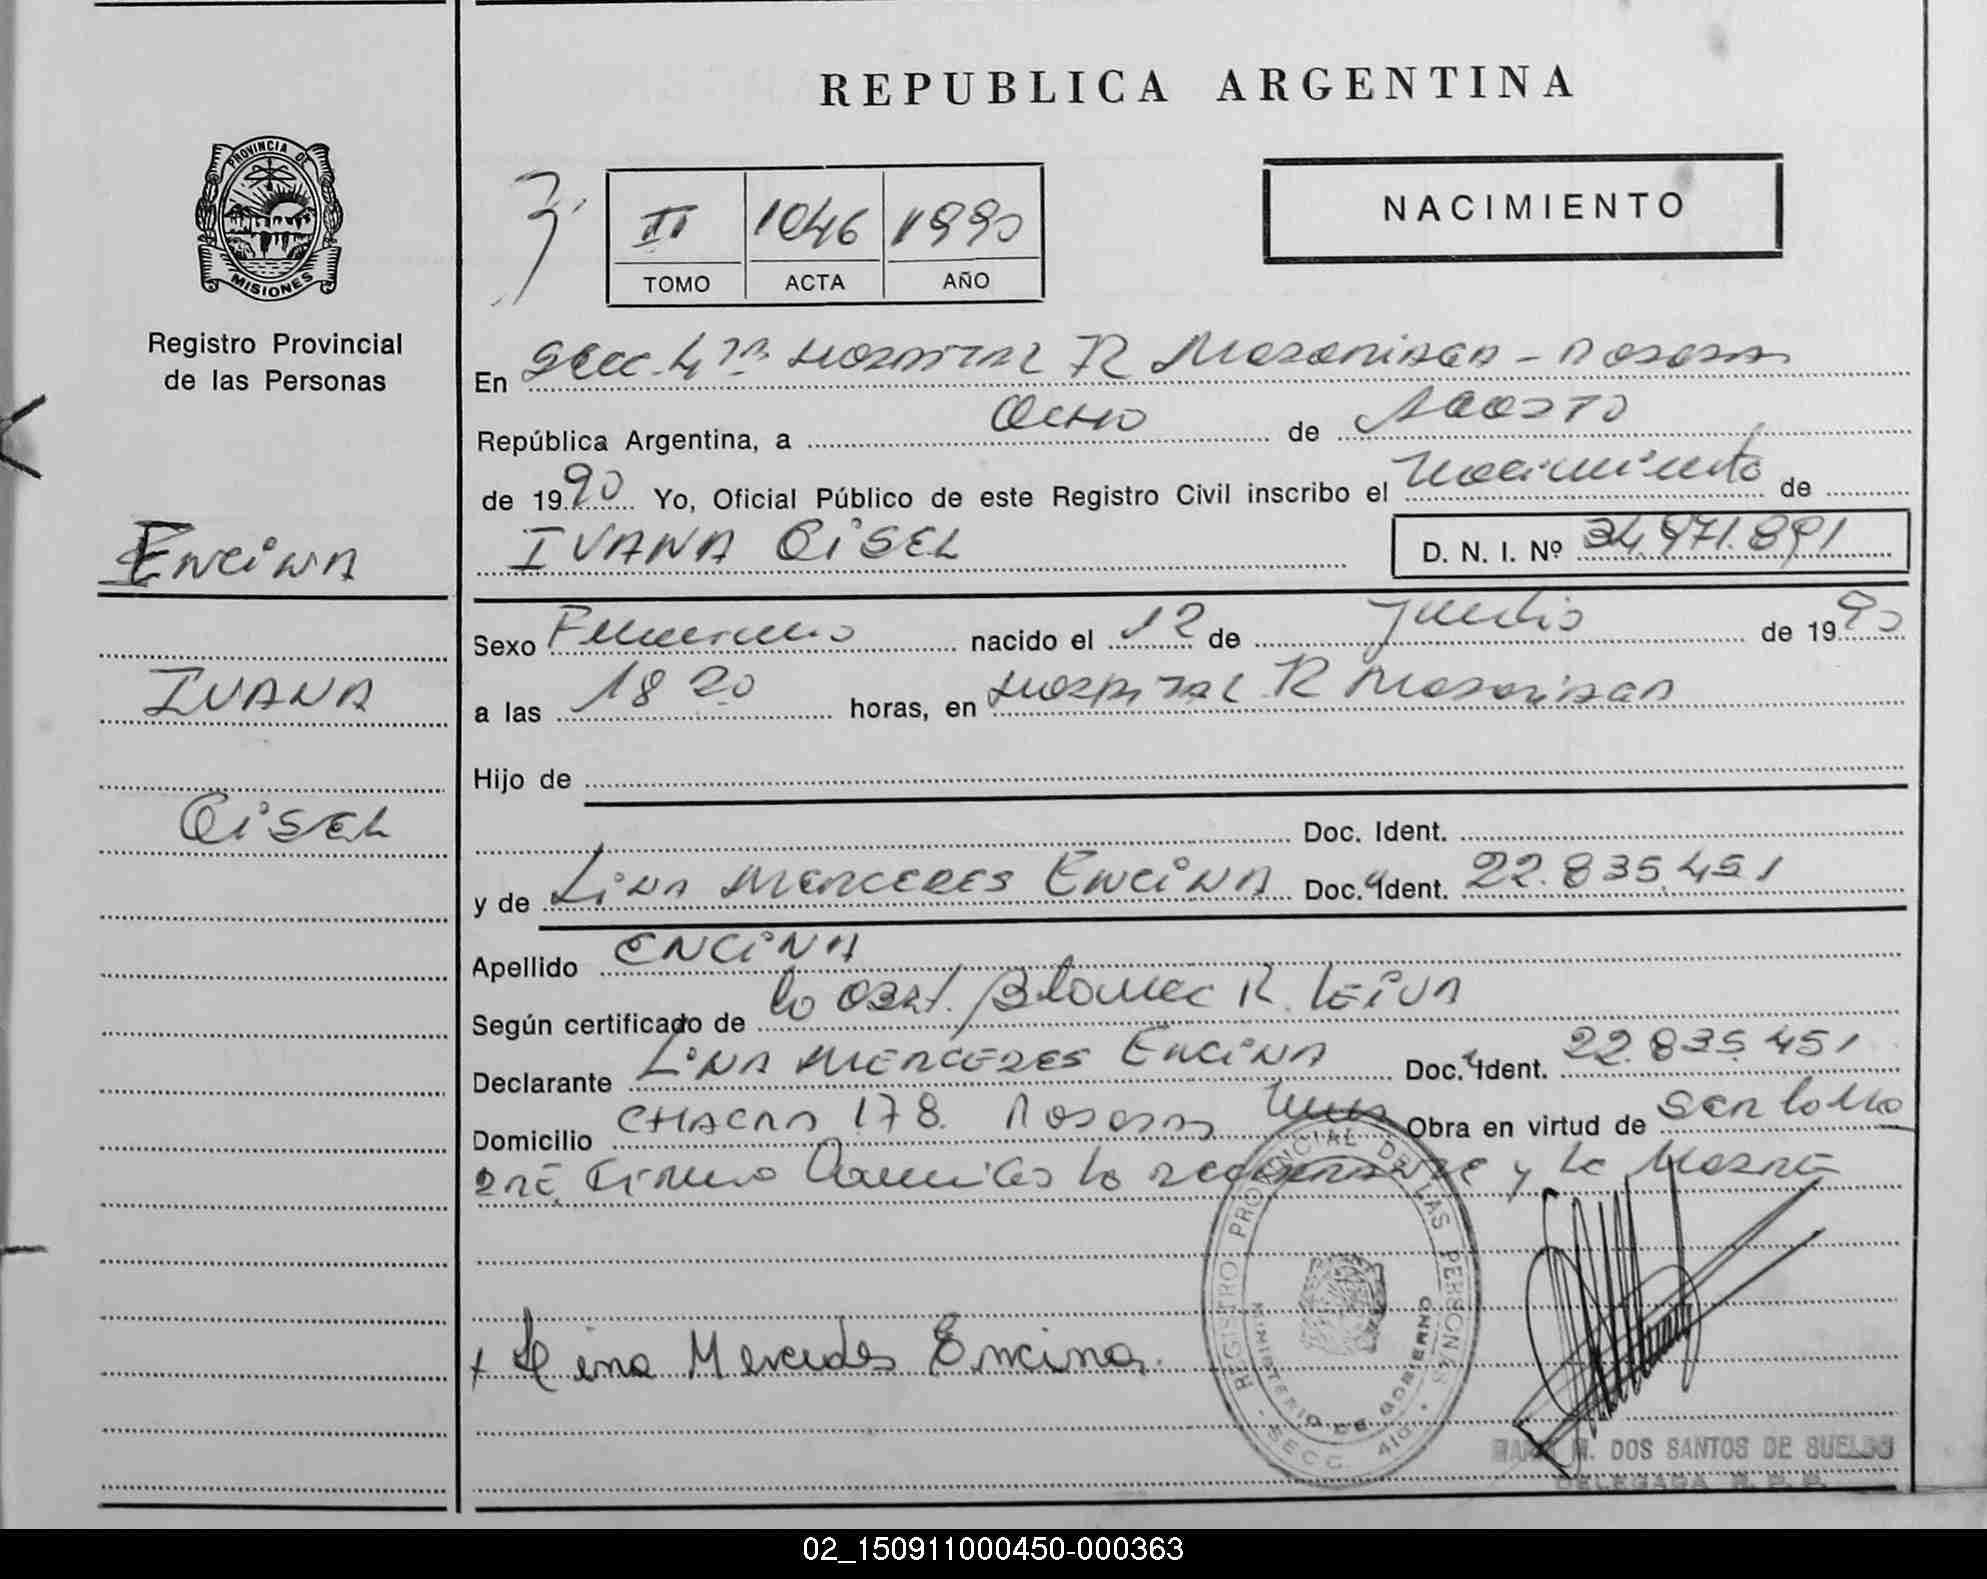 REPUBLICA ARGENTINA
PROVINCIA DE
MISIONES
Registro Provincial
de las Personas
II 1046 1990
TOMO ACTA AÑO
NACIMIENTO
En Secc. 4ta Hospital R Madariaga - Posadas
República Argentina, a Ocho de Agosto
de 1990 Yo, Oficial Público de este Registro Civil inscribo el nacimiento de
IVANA GISEL D. N. I. Nº 34.971.891
Encina
Ivana
Gisel
Sexo Femenino nacido el 12 de Junio de 1990
a las 18 20 horas, en Hospital R Madariaga
Hijo de
Doc. Ident.
y de Lina Mercedes Encina Doc. Ident. 22.835.451
Apellido Encina
Según certificado de la Obst. R. Leiva
Declarante Lina Mercedes Encina Doc. Ident. 22.835.451
Domicilio Chacra 178. Posadas Mnes Obra en virtud de ser la Madre
la y la Madre
x Lina Mercedes Encina.
REGISTRO PROVINCIAL DE LAS PERSONAS
MINISTERIO DE GOBIERNO
SECC. 4ta
M. DOS SANTOS DE SUELDO
DELEGADA R. P. P.
02_150911000450-000363